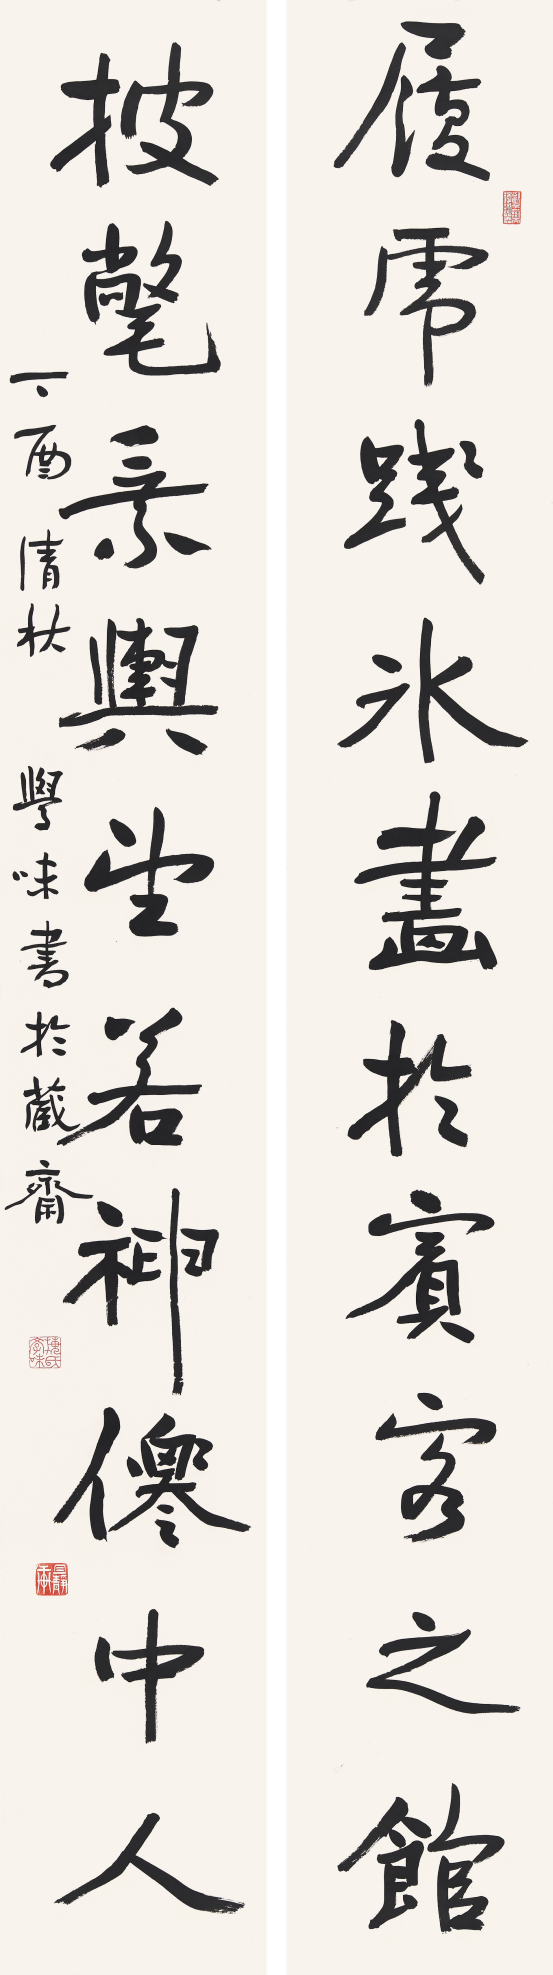 履虎践冰畫於賓客之館
披氅乘輿望若神僊中人
丁酉清秋 學味書於蔵齋